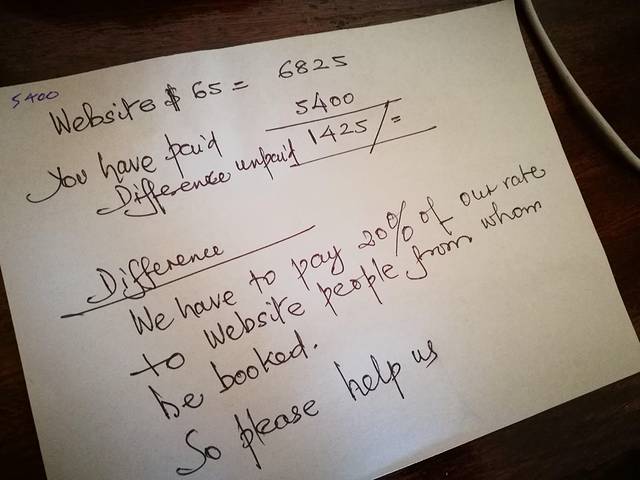 5400
Website $ 65 = 6825
You have paid 5400
Difference unpaid 1425/=
Difference
We have to pay 20% of our rate
to Website people from whom
he booked.
So please help us